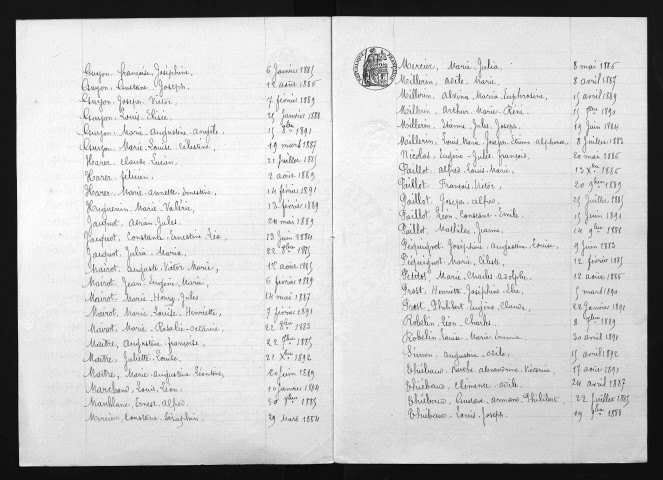 Guyon, Françoise Joséphine, 6 Janvier 1885
Guyon, Gustave Joseph, 12 août 1886
Guyon, Joseph Victor, 7 février 1889
Guyon, Louis Elisée, 25 Janvier 1888
Guyon, Marie Augustine Angèle, 15 8bre 1891
Guyon, Marie Louise Célestine, 19 mars 1887
Harer, Claude Lucien, 21 Juillet 1885
Harer, Félicien, 2 août 1889
Harer, Marie Annette Ernestine, 14 février 1891
Huguenin Marie Valérie, 13 février 1889
Jacquot, Adrien Jules, 24 mai 1889
Jacquot, Constance Ernestine Léa, 23 Juin 1884
Jacquot, Julia Maria, 22 1885
Mairot, Auguste Victor Marie, 12 août 1885
Mairot, Jean Eugène Marie, 6 février 1889
Mairot, Marie Henry Jules 14 mai 1887
Mairot, Marie Louise Henriette, 7 février 1891
Mairot, Marie Rosalie Octavie, 22 8bre 1883
Maitre, Augustine Françoise, 22 1885
Maitre, Juliette Louise, 21 Xbre 1892
Maitre, Marie Augustine Léontine, 20 Juin 1889
Marchand, Louis Léon, 10 Janvier 1884
Manblanc, Ernest Alfred, 30 1885
Mercier, Constant Séraphin, 29 mars 1884
Mercier, Marie Julia, 8 mai 1886
Millerin, Odile Marie, 8 avril 1887
Millerin, Alvina Maria Euphrosine, 15 avril 1889
Millerin, Arthur Marie René, 15 1890
Millerin, Etienne Jules Joseph, 19 Juin 1884
Millerin, Louis Marie Joseph Etienne Alphonse, 8 Juillet 1882
Nicolas, Eugène Jules François, 20 mai 1886
Paillot, Alfred Louis Marie, 13 Xbre 1886
Paillot, François Victor, 20 9bre 1889
Paillot, Joseph Alfred, 25 Juillet 1885
Paillot, Léon Constant Emile, 15 Juin 1891
Paillot, Mathilde Jeanne, 14 9bre 1888
Péquignot, Joséphine Augustine Louise, 9 Juin 1883
Péquignot, Marie Céleste, 12 février 1885
Petitot, Marie Charles Adolphe, 12 août 1886
Prost, Henriette Joséphine Elie, 5 mars 1890
Prost, Philibert Eugène Claude, 22 Janvier 1891
Robelin, Léon Charles, 8 1889
Robelin, Louise Marie Emma, 30 avril 1891
Simon, Augustine Odile, 15 avril 1892
Thiébaud, Berthe Alexandrine Victorine, 17 août 1891
Thiébaud, Clémence Odile, 24 avril 1887
Thiébaud, Gustave Armand Philibert, 22 Juillet 1885
Thiébaud, Louis Joseph, 29 1888